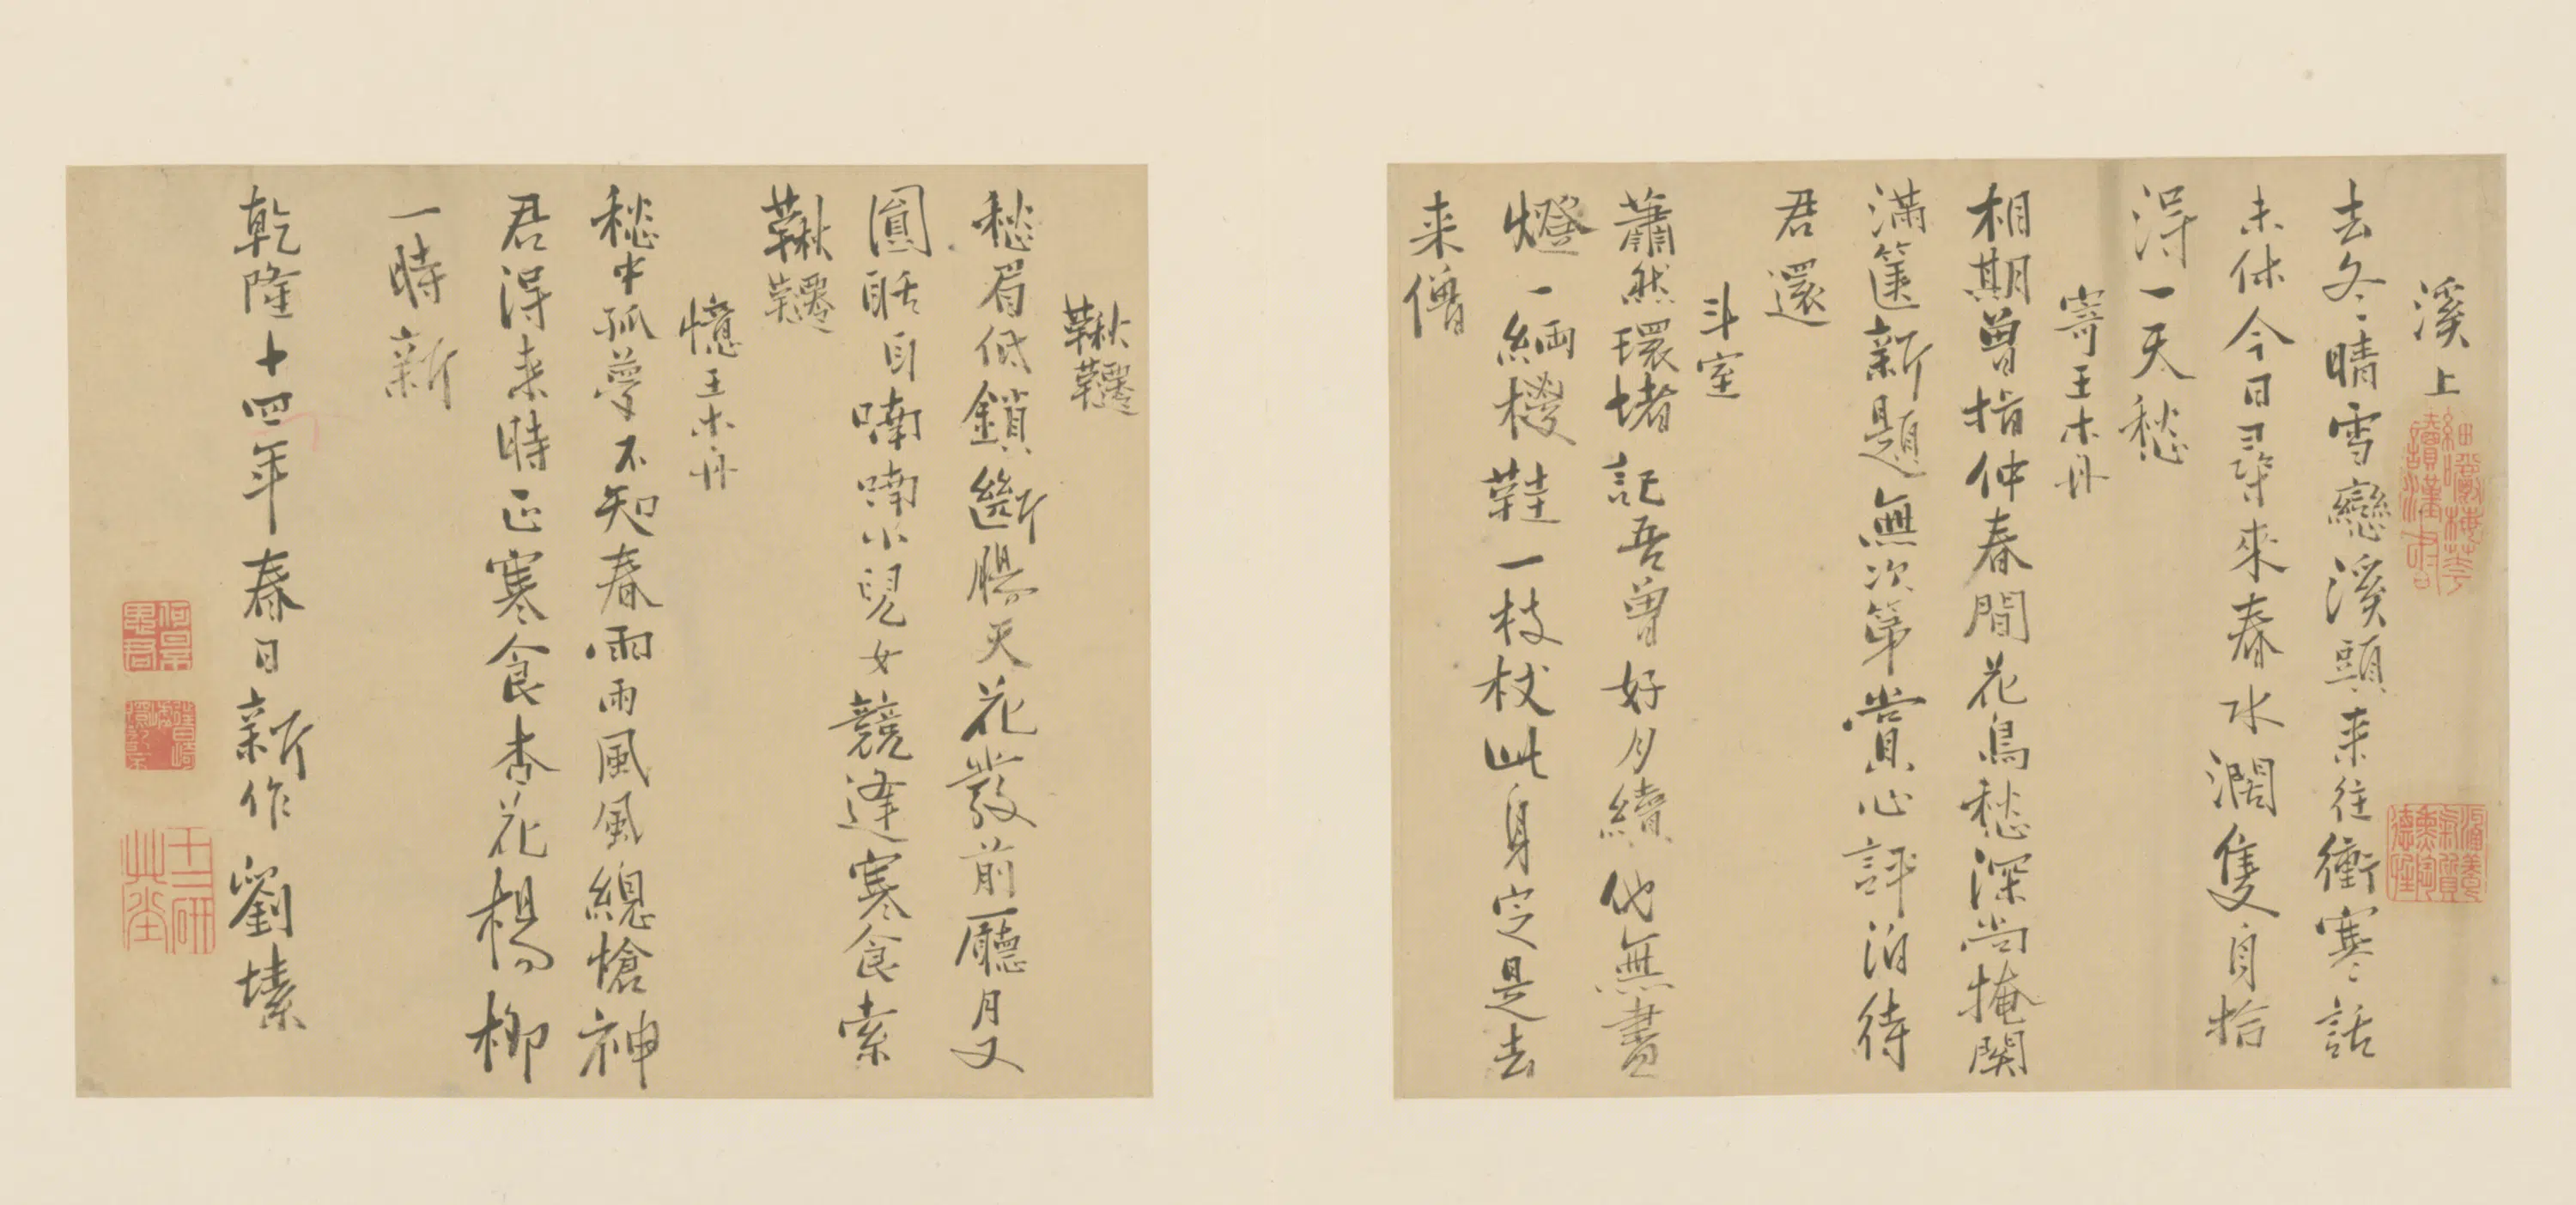 溪上
去冬晴雪戀溪頭来往衝寒話
未休今日尋來春水濶隻身拾
得一天愁
寄王木丹
相期曾指仲春間花鳥愁深尚掩関
滿篋新題無次第賞心評泊待
君還
斗室
蕭然環堵記吾曾好月續他無盡
燈一緉椶鞵一枝杖此身定是去
来僧
鞦韆
愁眉低鎖斷腸天花發前廳月又
圓聒耳喃喃小兒女競逢寒食索
鞦韆
憶王木丹
愁中孤夢不知春雨雨風風總愴神
君得来時正寒食杏花楊柳
一時新
乾隆十四年春日新作劉墉